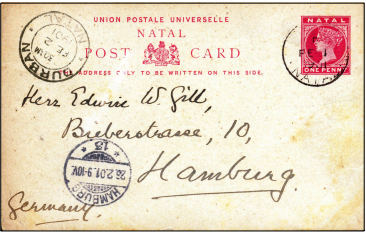 UNION POSTALE UNIVERSELLE
NATAL
POST CARD
ADDRESS ONLY TO BE WRITTEN ON THIS SIDE.
NATAL
ONE PENNY
DURBAN
FE 2
NATAL
Herr Edwin W. Gill,
Bieberstrasse, 10,
Hamburg.
Germany.
HAMBURG
26.2.01.9-10V.
* 13 *